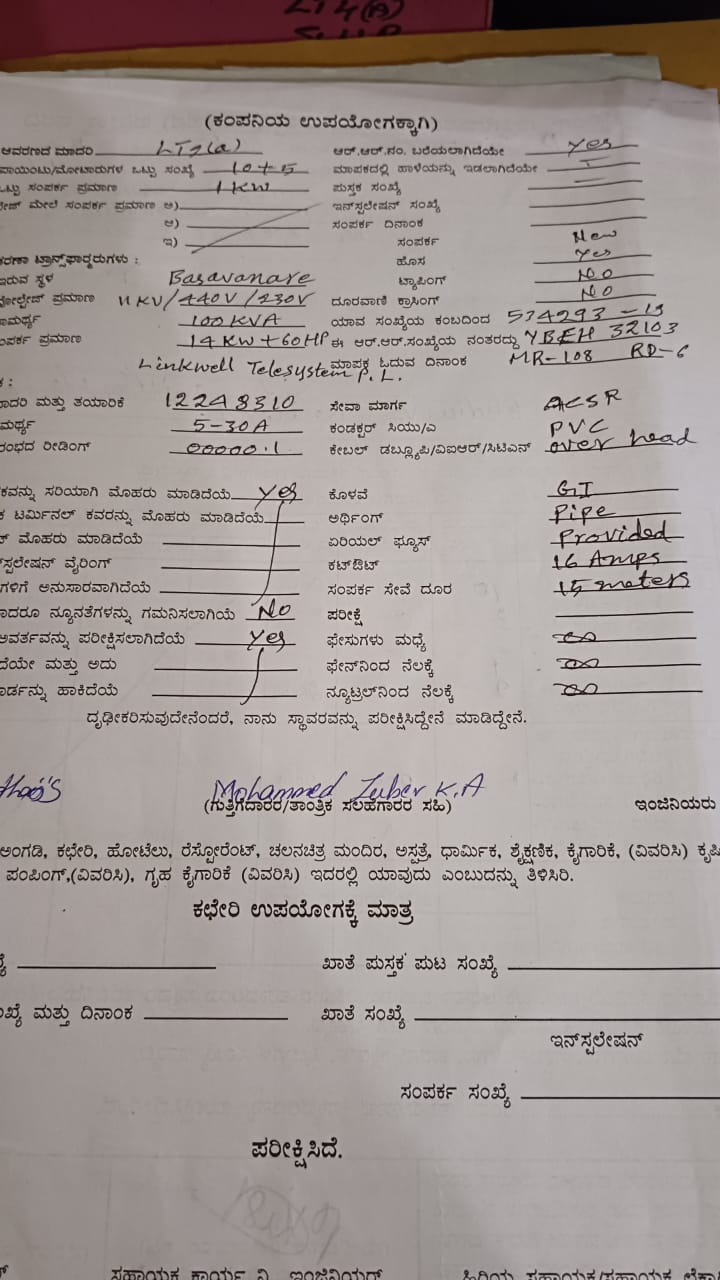 LT4(A)
(ಕಂಪನಿಯ ಉಪಯೋಗಕ್ಕಾಗಿ)
ಆವರಣದ ಮಾದರಿ LT2(a) ಆರ್.ಆರ್.ನಂ. ಬರೆಯಲಾಗಿದೆಯೇ Yes
ಪಾಯಿಂಟು/ಮೋಟಾರುಗಳ ಒಟ್ಟು ಸಂಖ್ಯೆ 10+5 ಮಾಪಕದಲ್ಲಿ ಹಾಳೆಯನ್ನು ಇಡಲಾಗಿದೆಯೇ
ಒಟ್ಟು ಸಂಪರ್ಕ ಪ್ರಮಾಣ 1KW ಪುಸ್ತಕ ಸಂಖ್ಯೆ
ಮೇಲೆ ಸಂಪರ್ಕ ಪ್ರಮಾಣ ಅ) ಇನ್‌ಸ್ಟಲೇಷನ್ ಸಂಖ್ಯೆ
ಆ) ಸಂಪರ್ಕ ದಿನಾಂಕ
ಇ) ಸಂಪರ್ಕ New
ಟ್ರಾನ್ಸ್‌ಫಾರ್ಮರುಗಳು : ಹೊಸ Yes
ಇರುವ ಸ್ಥಳ Basavanare ಟ್ಯಾಪಿಂಗ್ NO
ವೋಲ್ಟೇಜ್ ಪ್ರಮಾಣ 11KV/440V/230V ದೂರವಾಣಿ ಕ್ರಾಸಿಂಗ್ NO
ಸಾಮರ್ಥ್ಯ 100KVA ಯಾವ ಸಂಖ್ಯೆಯ ಕಂಬದಿಂದ 574293-19
ಸಂಪರ್ಕ ಪ್ರಮಾಣ 14KW+60HP ಈ ಆರ್.ಆರ್.ಸಂಖ್ಯೆಯ ನಂತರದ್ದು YBEH 32103
Linkwell Telesystem P.L. ಮಾಪಕ ಓದುವ ದಿನಾಂಕ MR-108 RD-6
ಮಾದರಿ ಮತ್ತು ತಯಾರಿಕೆ 12248310 ಸೇವಾ ಮಾರ್ಗ ACSR
5-30A ಕಂಡಕ್ಟರ್ ಸಿಯು/ಎ PVC
ರೀಡಿಂಗ್ 00000.1 ಕೇಬಲ್ ಡಬ್ಲ್ಯೂಪಿ/ವಿಐಆರ್/ಸಿಟಿಎಸ್ over head
ಸರಿಯಾಗಿ ಮೊಹರು ಮಾಡಿದೆಯೆ Yes ಕೊಳವೆ GI
ಟರ್ಮಿನಲ್ ಕವರನ್ನು ಮೊಹರು ಮಾಡಿದೆಯೆ ಅರ್ಥಿಂಗ್ Pipe
ಮೊಹರು ಮಾಡಿದೆಯೆ ಏರಿಯಲ್ ಫ್ಯೂಸ್ Provided
ವೈರಿಂಗ್ ಕಟ್‌ಔಟ್ 16 Amps
ಗಳಿಗೆ ಅನುಸಾರವಾಗಿದೆಯೆ ಸಂಪರ್ಕ ಸೇವೆ ದೂರ 15 meters
ನ್ಯೂನತೆಗಳನ್ನು ಗಮನಿಸಲಾಗಿಯೆ No ಪರೀಕ್ಷೆ
ಪರೀಕ್ಷಿಸಲಾಗಿದೆಯೆ Yes ಫೇಸುಗಳು ಮಧ್ಯೆ ∞
ಮತ್ತು ಅದು ಫೇಸ್‌ನಿಂದ ನೆಲಕ್ಕೆ ∞
ಹಾಕಿದೆಯೆ ನ್ಯೂಟ್ರಲ್‌ನಿಂದ ನೆಲಕ್ಕೆ ∞
ದೃಢೀಕರಿಸುವುದೇನೆಂದರೆ, ನಾನು ಸ್ಥಾವರವನ್ನು ಪರೀಕ್ಷಿಸಿದ್ದೇನೆ ಮಾಡಿದ್ದೇನೆ.
Mohammed Zuber K.A
(ಗುತ್ತಿಗೆದಾರರ/ತಾಂತ್ರಿಕ ಸಲಹೆಗಾರರ ಸಹಿ) ಇಂಜಿನಿಯರು
ಅಂಗಡಿ, ಕಛೇರಿ, ಹೋಟೆಲು, ರೆಸ್ಟೋರೆಂಟ್, ಚಲನಚಿತ್ರ ಮಂದಿರ, ಅಸ್ಪತ್ರೆ, ಧಾರ್ಮಿಕ, ಶೈಕ್ಷಣಿಕ, ಕೈಗಾರಿಕೆ, (ವಿವರಿಸಿ) ಕೃಷಿ
ಪಂಪಿಂಗ್,(ವಿವರಿಸಿ), ಗೃಹ ಕೈಗಾರಿಕೆ (ವಿವರಿಸಿ) ಇದರಲ್ಲಿ ಯಾವುದು ಎಂಬುದನ್ನು ತಿಳಿಸಿರಿ.
ಕಛೇರಿ ಉಪಯೋಗಕ್ಕೆ ಮಾತ್ರ
ಖಾತೆ ಪುಸ್ತಕ ಪುಟ ಸಂಖ್ಯೆ
ಮತ್ತು ದಿನಾಂಕ ಖಾತೆ ಸಂಖ್ಯೆ
ಇನ್‌ಸ್ಪಲೇಷನ್
ಸಂಪರ್ಕ ಸಂಖ್ಯೆ
ಪರೀಕ್ಷಿಸಿದೆ.